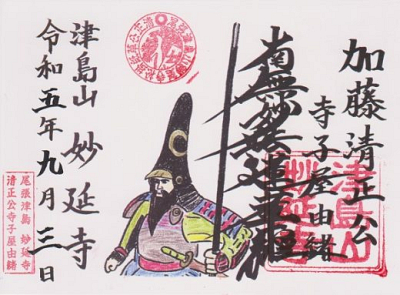 加藤清正公
寺子屋由緒
南無妙法蓮華経
津島山 妙延寺
令和五年九月三日
尾張津島 妙延寺
清正公寺子屋由緒
津島山
妙延寺